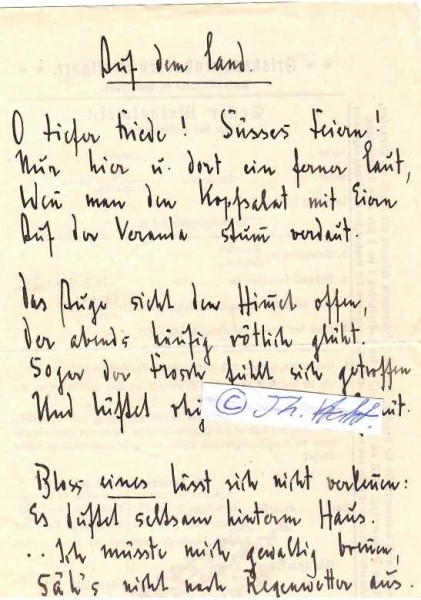 Auf dem Land.
O tiefer Friede! Süsses Feiern!
Nur hier u. dort ein ferner Laut,
Wenn man den Kopfsalat mit Eiern
Auf der Veranda stumm verdaut.
Das Auge sieht den Himmel offen,
Der abends häufig rötlich glüht.
Sogar der Frosch fühlt sich getroffen
Und lüftet
© Th.
Bloss eines lässt sich nicht verkennen:
Es duftet seltsam hinterm Haus.
.. Ich müsste mich gewaltig brennen,
Säh's nicht nach Regenwetter aus.